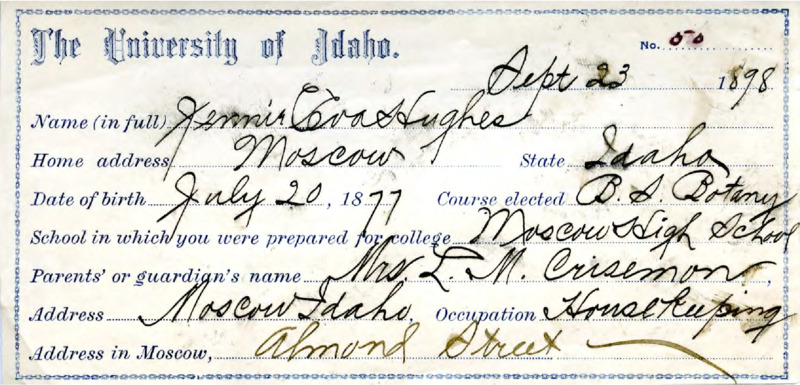 The University of Idaho.
No. 50
Sept 23 1898
Name (in full) Jennie Eva Hughes
Home address Moscow State Idaho
Date of birth July 20, 1877 Course elected B. S. Botany
School in which you were prepared for college Moscow High School
Parents' or guardian's name Mrs. L. M. Crisemon,
Address Moscow Idaho, Occupation Housekeeping
Address in Moscow, Almond Street